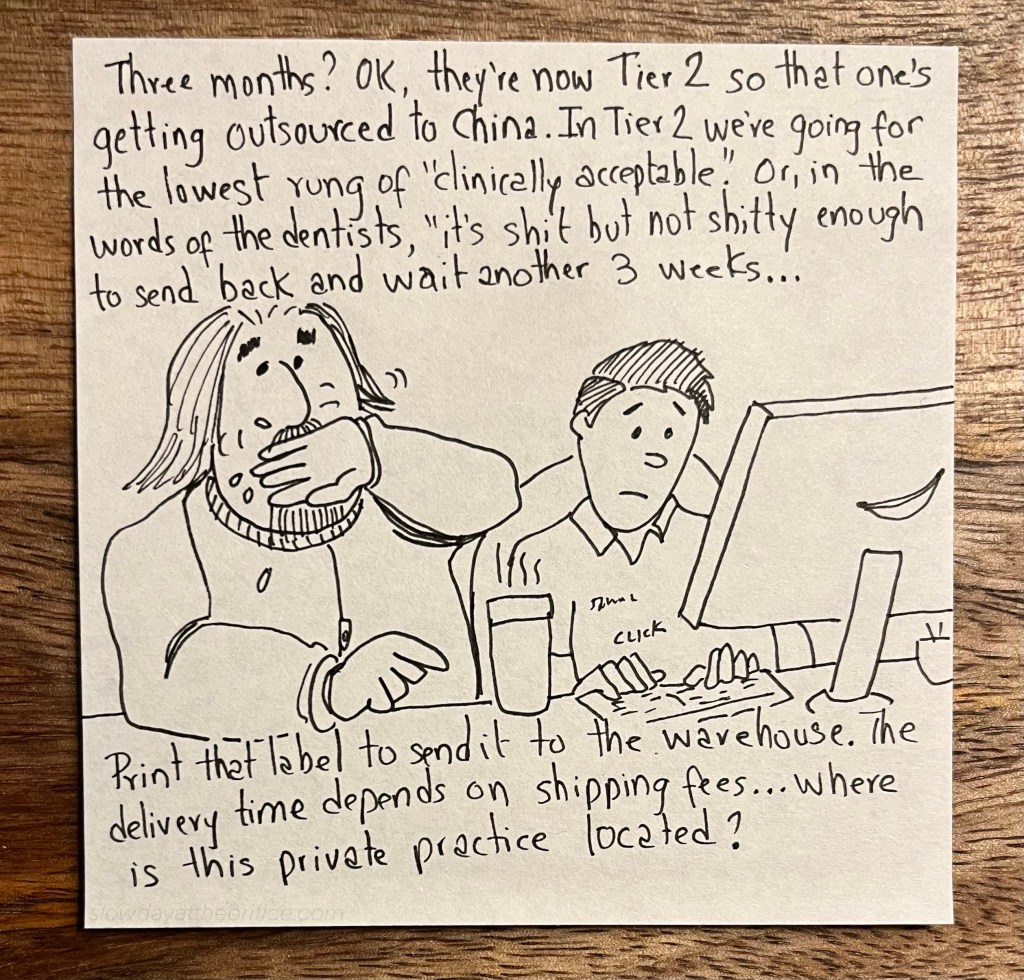 Three months? OK, they're now Tier 2 so that one's
getting outsourced to China. In Tier 2 we're going for
the lowest rung of "clinically acceptable." Or, in the
words of the dentists, "it's shit but not shitty enough
to send back and wait another 3 weeks...
CLICK
Print that label to send it to the warehouse. The
delivery time depends on shipping fees... where
is this private practice located?
slowdayattheorifice.com